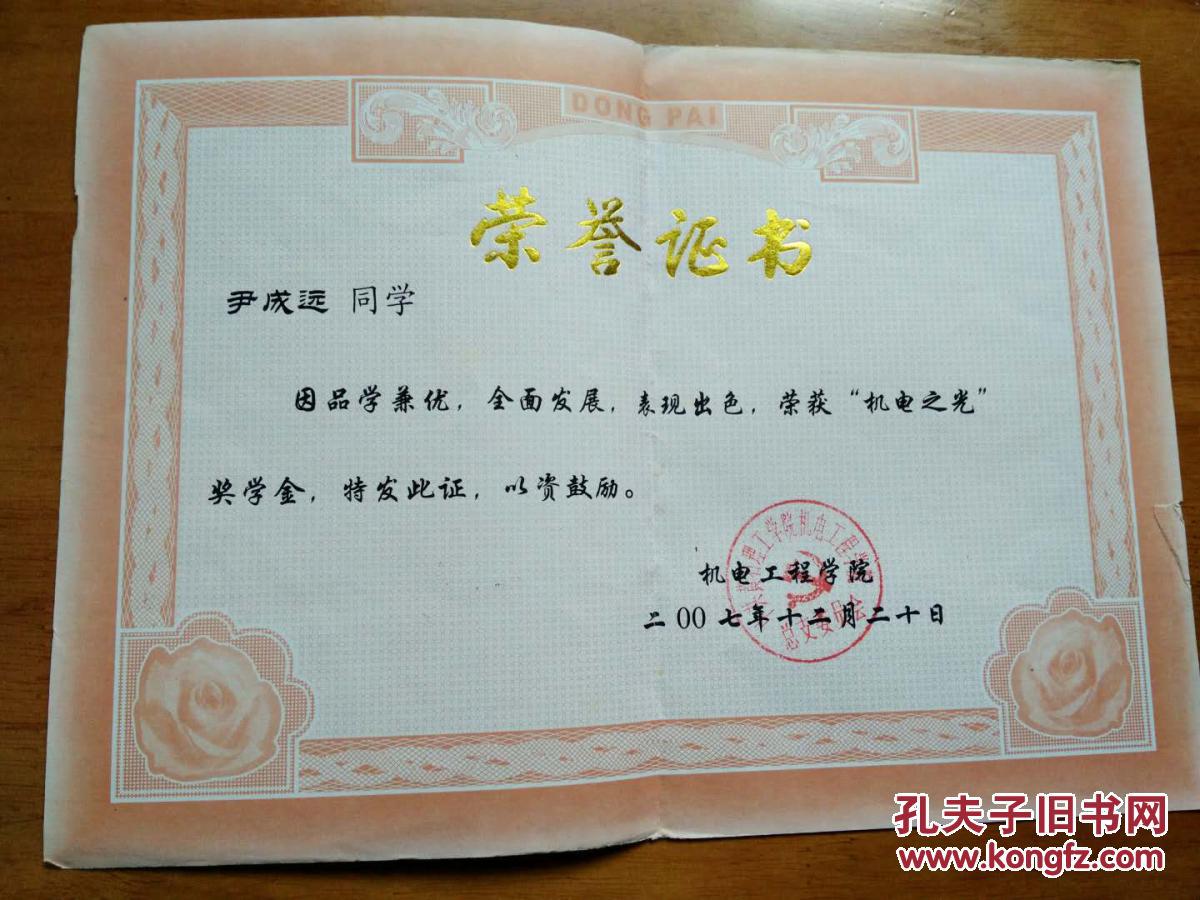 DONG PAI
荣誉证书
尹成远 同学
因品学兼优，全面发展，表现出色，荣获“机电之光”
奖学金，特发此证，以资鼓励。
理工学院机电工程学
总支委员会
机电工程学院
二00七年十二月二十日
孔夫子旧书网
www.kongfz.com